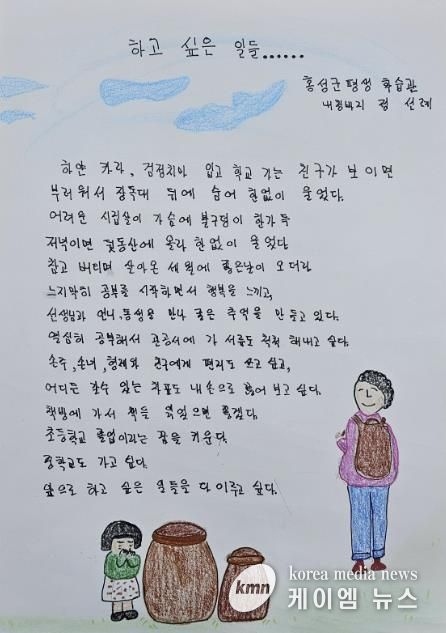 하고 싶은 일들......
홍성군 평생 학습관
내림바지 정 선례
하얀 카라, 검정치마 입고 학교 가는 친구가 보이면
부러워서 장독대 뒤에 숨어 한없이 울었다.
어려운 시집살이 가슴에 불구덩이 한가득
저녁이면 뒷동산에 올라 한없이 울었다
참고 버티며 살아온 세월에 좋은날이 오더라
느지막히 공부를 시작하면서 행복을 느끼고,
선생님과 언니, 동생을 만나 좋은 추억을 만들고 있다.
열심히 공부해서 관공서에 가 서류도 척척 해내고 싶다.
손주, 손녀, 형제와 친구에게 편지도 쓰고 싶고,
어디든 갈수 있는 차표도 내손으로 끊어 보고 싶다.
책방에 가서 책을 읽었으면 좋겠다.
초등학교 졸업이라는 꿈을 키운다.
중학교도 가고 싶다.
앞으로 하고 싶은 일들을 다 이루고 싶다.
kmn
korea media news
케이엠 뉴스